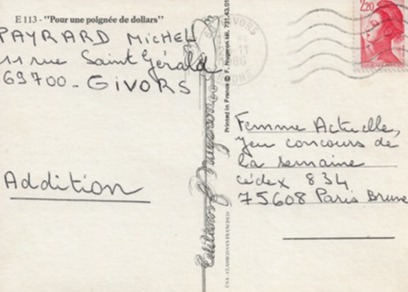 E 113 - "Pour une poignée de dollars"
PAYRARD MICHEL
11 rue Saint Gérald
69700 - GIVORS
Addition
Editions f Nugeron
Printed in France © F. Nugeron tél.
GIVORS
2,20
Femme Actuelle,
jeu concours de
la semaine
cédex 834
75608 Paris Brune